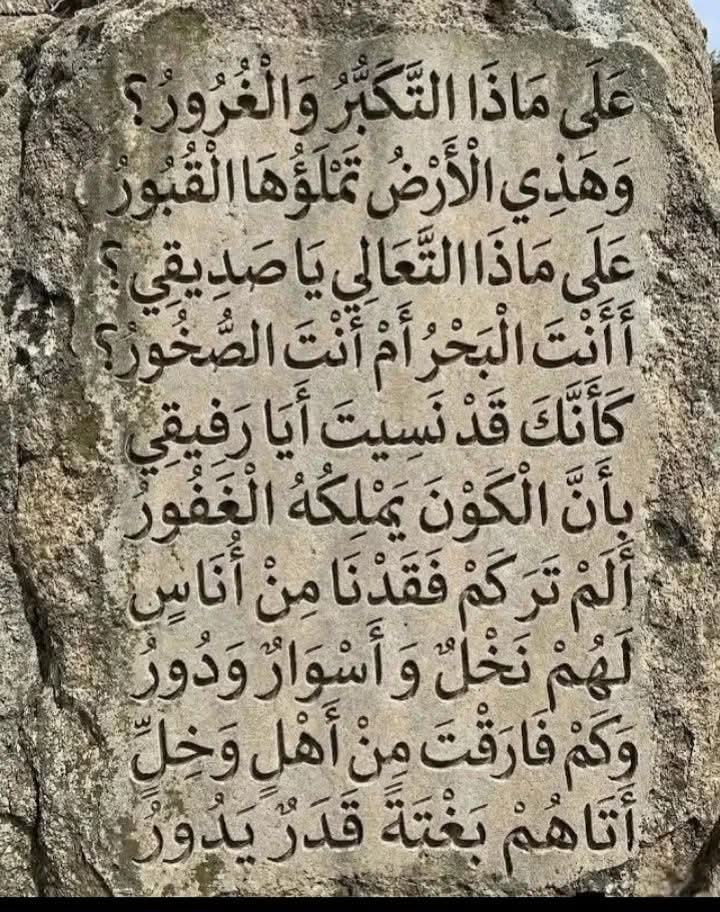 عَلَى مَاذَا التَّكَبُّرُ وَالْغُرُورُ؟
وَهَذِي الْأَرْضُ تَمْلَؤُهَا الْقُبُورُ
عَلَى مَاذَا التَّعَالِي يَا صَدِيقِي؟
أَأَنْتَ الْبَحْرُ أَمْ أَنْتَ الصُّخُورُ؟
كَأَنَّكَ قَدْ نَسِيتَ أَيَا رَفِيقِي
بِأَنَّ الْكَوْنَ يَمْلِكُهُ الْغَفُورُ
أَلَمْ تَرَ كَمْ فَقَدْنَا مِنْ أُنَاسٍ
لَهُمْ نَخْلٌ وَأَسْوَارٌ وَدُورُ
وَكَمْ فَارَقْتَ مِنْ أَهْلٍ وَخِلٍّ
أَتَاهُمْ بَغْتَةً قَدَرٌ يَدُورُ